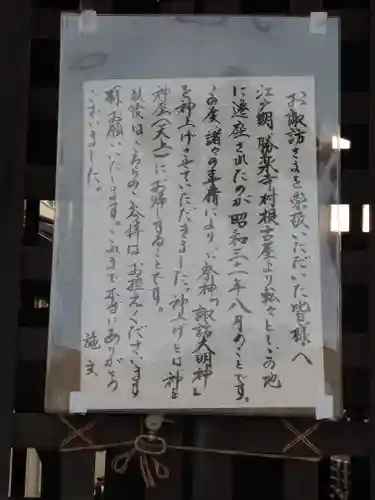 お諏訪さまを崇敬いただいた皆様へ
江戸期 勝楽寺村根古屋より転々としこの地
に遷座されたのが昭和三十一年八月のことです。
この度 諸々の事情により、ご祭神「諏訪大明神」
を神上げさせていただきました。神上げとは神を
神座(天上)にお帰しすることです。
以後は、こちらのご参拝はお控えくださいます
様お願いいたします。これまで本当にありがとう
ございました。
施主